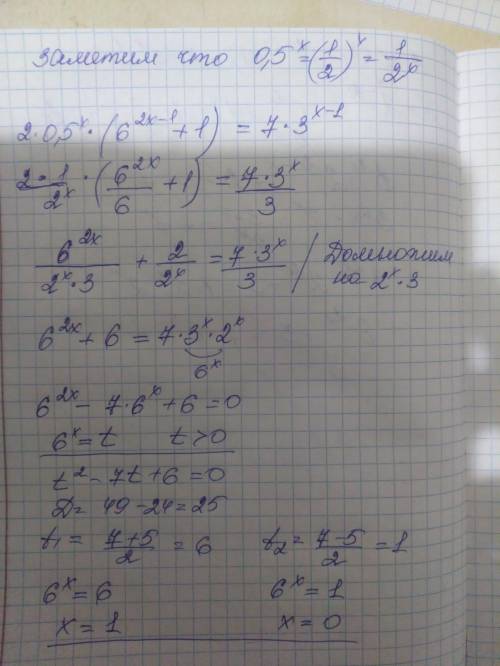 Заметим что 0,5^x = (1/2)^x = 1/2^x
2·0,5^x · (6^(2x-1) + 1) = 7·3^(x-1)
2·1/2^x · (6^(2x)/6 + 1) = 7·3^x/3
6^(2x)/(2^x·3) + 2/2^x = 7·3^x/3 / Домножим на 2^x·3
6^(2x) + 6 = 7·3^x·2^x
6^x
6^(2x) - 7·6^x + 6 = 0
6^x = t t>0
t^2 - 7t + 6 = 0
D = 49 - 24 = 25
t₁ = (7+5)/2 = 6 t₂ = (7-5)/2 = 1
6^x = 6 6^x = 1
x = 1 x = 0